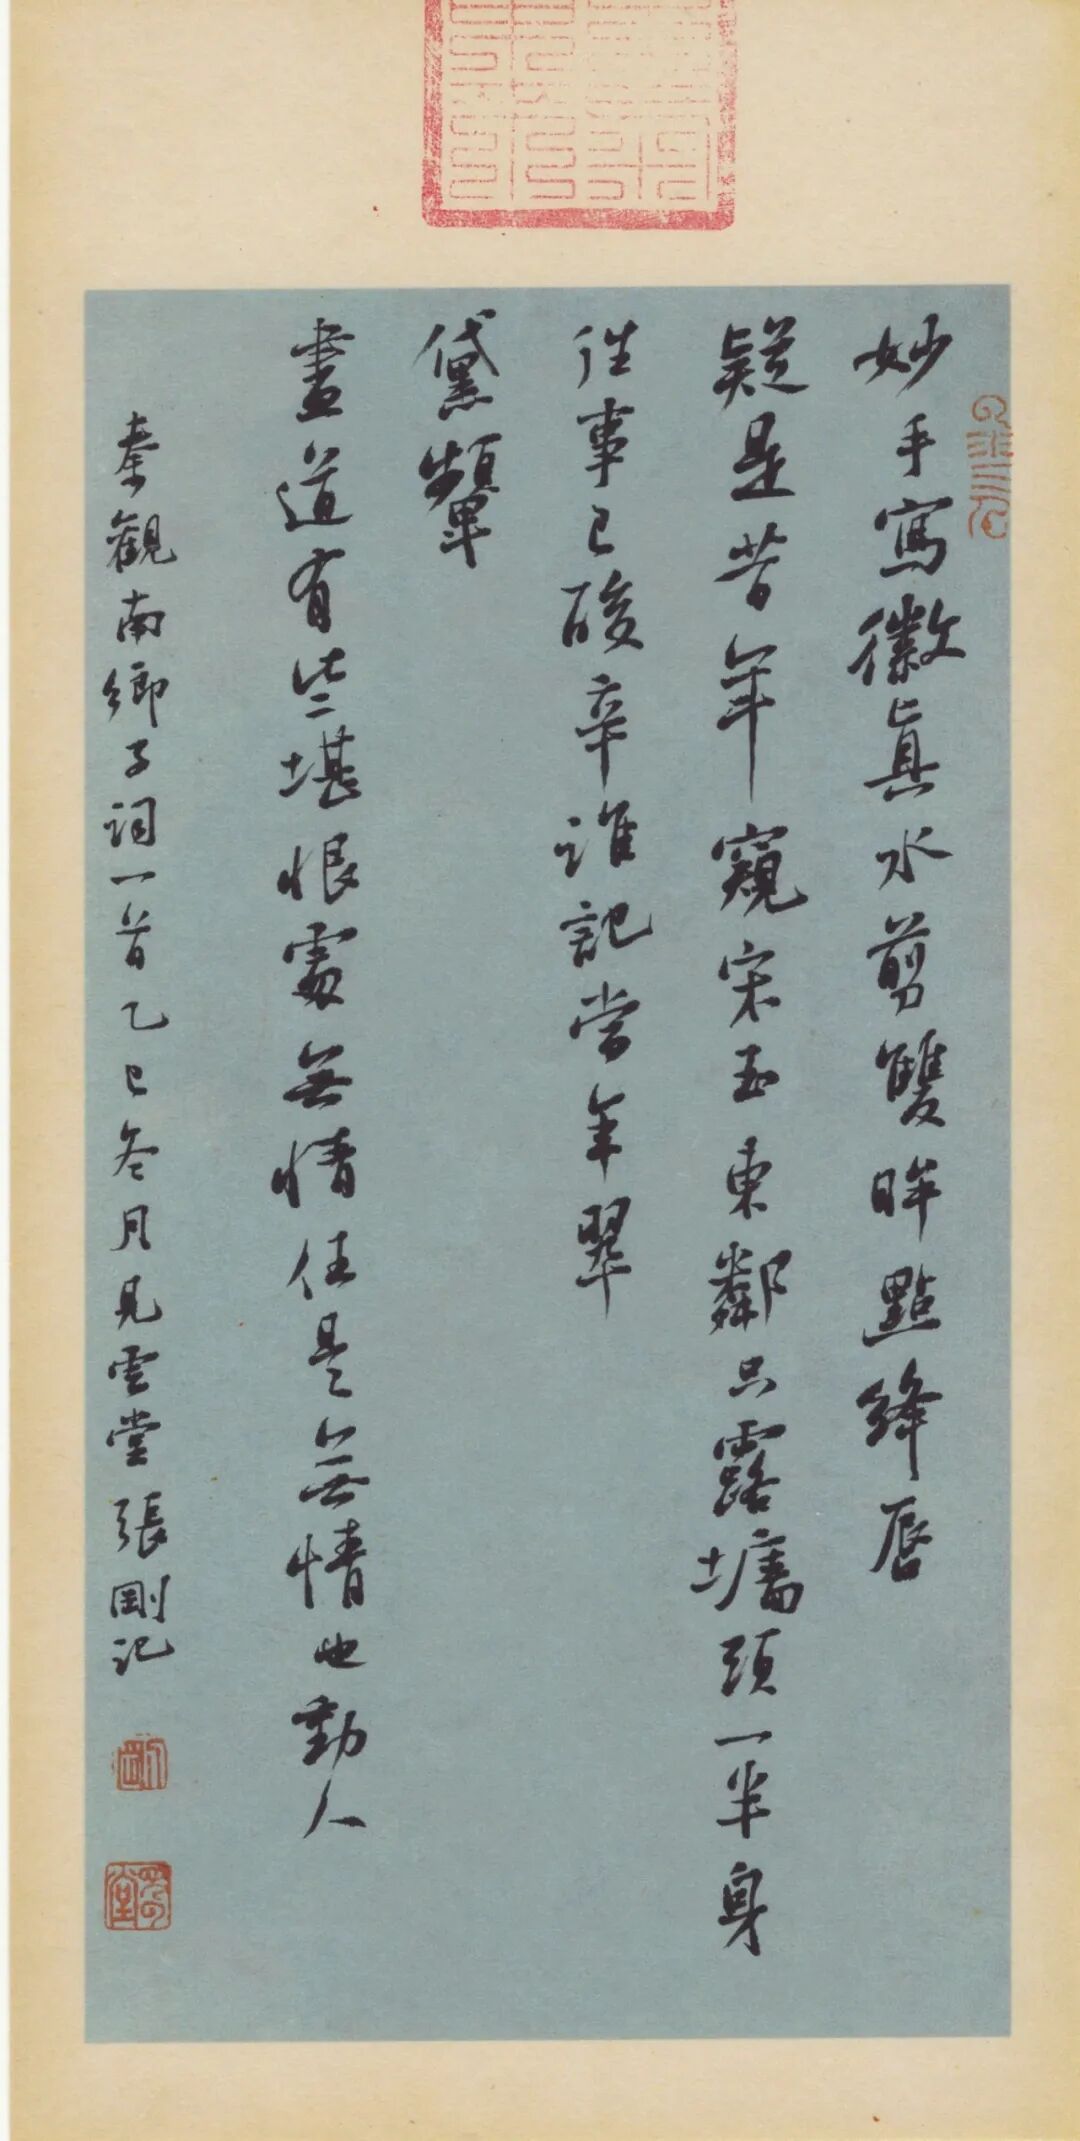 妙手寫徽眞水剪雙眸點絳唇
疑是昔年窺宋玉東鄰只露墻頭一半身
往事已酸辛誰記當年翠
黛顰
盡道有些堪恨處無情任是無情也動人
秦觀南鄉子詞一首乙巳冬月見雲堂張剛記